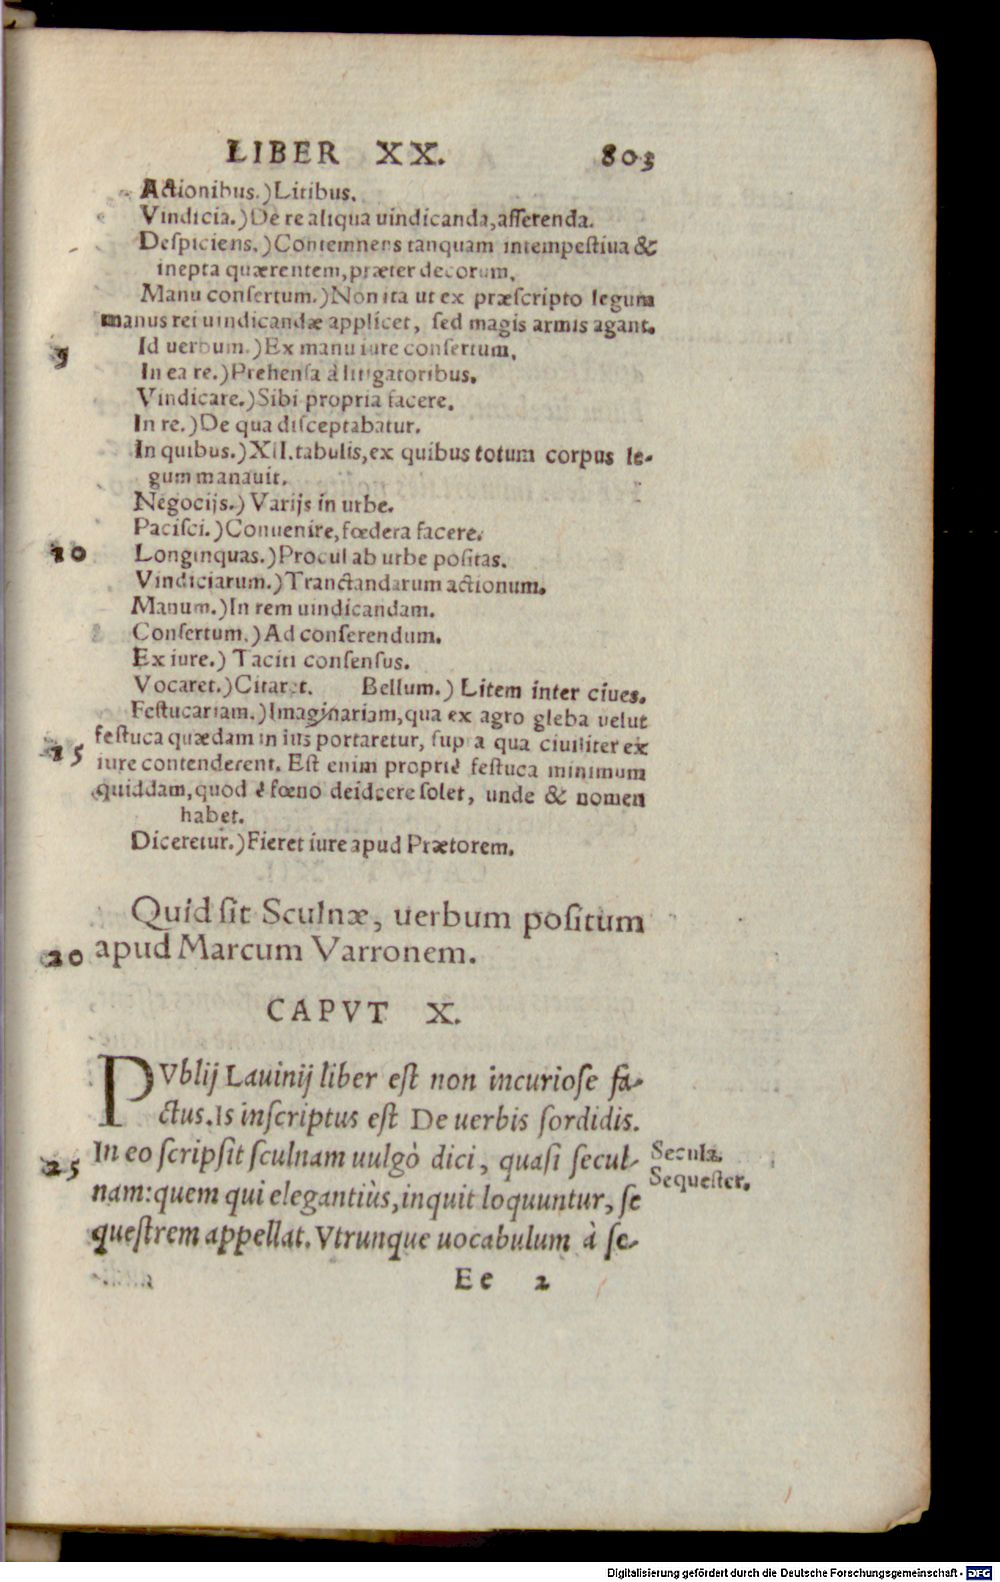 LIBER XX. 803
Actionibus.) Litibus.
Vindicia.) De re aliqua uindicanda, asserenda.
Despiciens.) Contemnens tanquam intempestiua &
inepta quærentem, præter decorum.
Manu consertum.) Non ita ut ex præscripto legum
manus rei uindicandæ applicet, sed magis armis agant.
5 Id uerbum.) Ex manu iure consertum.
In ea re.) Prehensa à litigatoribus.
Vindicare.) Sibi propria facere.
In re.) De qua disceptabatur.
In quibus.) XII. tabulis, ex quibus totum corpus le-
gum manauit.
Negocijs.) Varijs in urbe.
Pacisci.) Conuenire, fœdera facere.
10 Longinquas.) Procul ab urbe positas.
Vindiciarum.) Tranctandarum actionum.
Manum.) In rem uindicandam.
Consertum.) Ad conserendum.
Ex iure.) Taciti consensus.
Vocaret.) Citaret. Bellum.) Litem inter ciues.
Festucariam.) Imaginariam, qua ex agro gleba uelut
festuca quædam in ius portaretur, supra qua ciuiliter ex
15 iure contenderent. Est enim propriè festuca minimum
quiddam, quod è fœno deidcere solet, unde & nomen
habet.
Diceretur.) Fieret iure apud Prætorem.
Quid sit Sculnæ, uerbum positum
20 apud Marcum Varronem.
CAPVT X.
PVblij Lauinij liber est non incuriose fa-
ctus. Is inscriptus est De uerbis sordidis.
25 In eo scripsit sculnam uulgò dici, quasi secul-
nam: quem qui elegantiùs, inquit loquuntur, se
questrem appellat. Vtrunque uocabulum à se-
Secula.
Sequester.
Ee 2
Digitalisierung gefördert durch die Deutsche Forschungsgemeinschaft - DFG